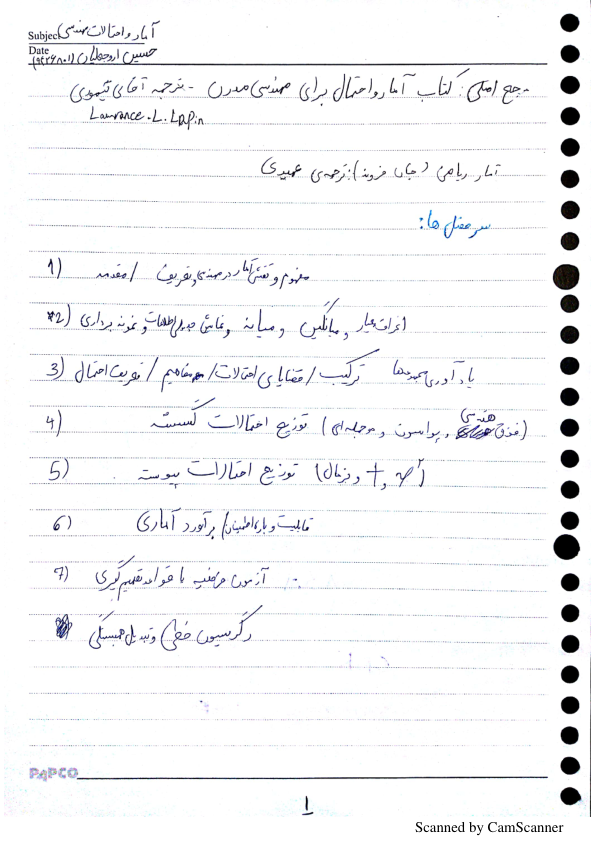 Subject آمار و احتمالات مهندسی
Date حسین
مرجع اصلی: کتاب آمار و احتمال برای مهندسی مدرن - ترجمه آقای تیموری
Lawrance.L.Lapin
آمار ریاضی (جان فروند): ترجمه‌ی عمیدی
سرفصل ها:
1) مفهوم و نقش آمار در مهندسی و تعریف / مقدمه
2) انحراف معیار و میانگین و میانه و نمایش جدولی اطلاعات و نمونه برداری
3) یادآوری مجموعه‌ها ترکیب / قضایای احتمالات / مفاهیم / تعریف احتمال
4) توزیع احتمالات گسسته (فوق هندسی و پواسون و دوجمله‌ای)
5) توزیع احتمالات پیوسته (t و نرمال)
6) قابلیت و بازه اطمینان / برآورد آماری
7) آزمون فرضیه با قواعد تصمیم‌گیری
رگرسیون خطی و تحلیل همبستگی
PAPCO
1
Scanned by CamScanner